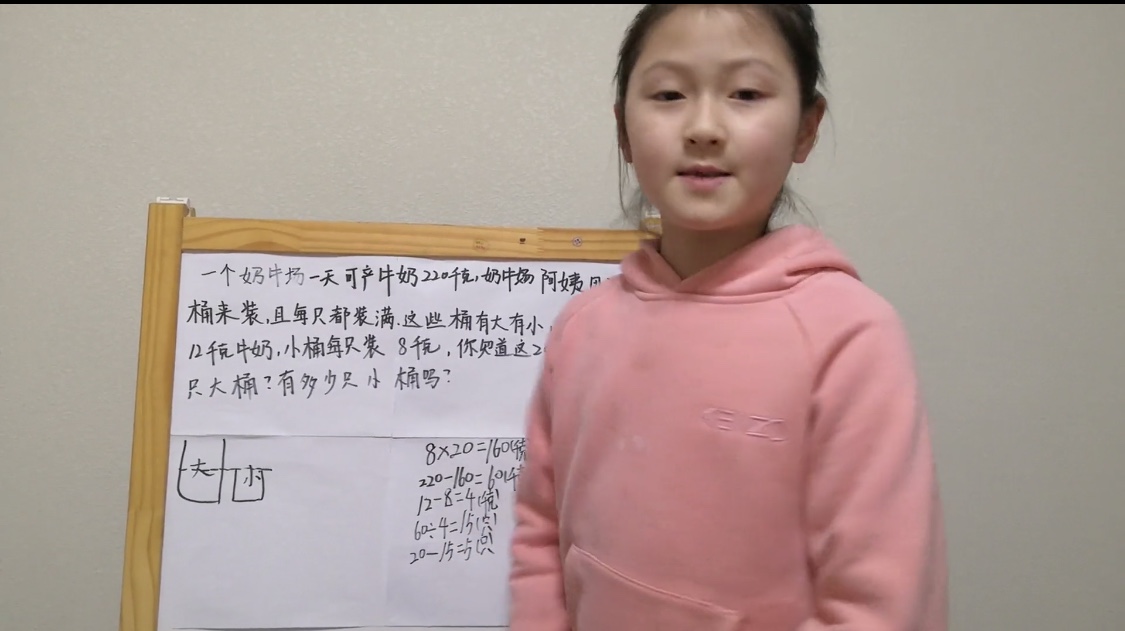 一个奶牛场一天可产牛奶220千克,奶牛场阿姨用
桶来装,且每只都装满.这些桶有大有小,
12千克牛奶,小桶每只装 8千克,你知道这2
只大桶?有多少只小桶吗?
大 小
8×20=160(千克
220-160=60(千
12-8=4(千克)
60÷4=15(只)
20-15=5(只)